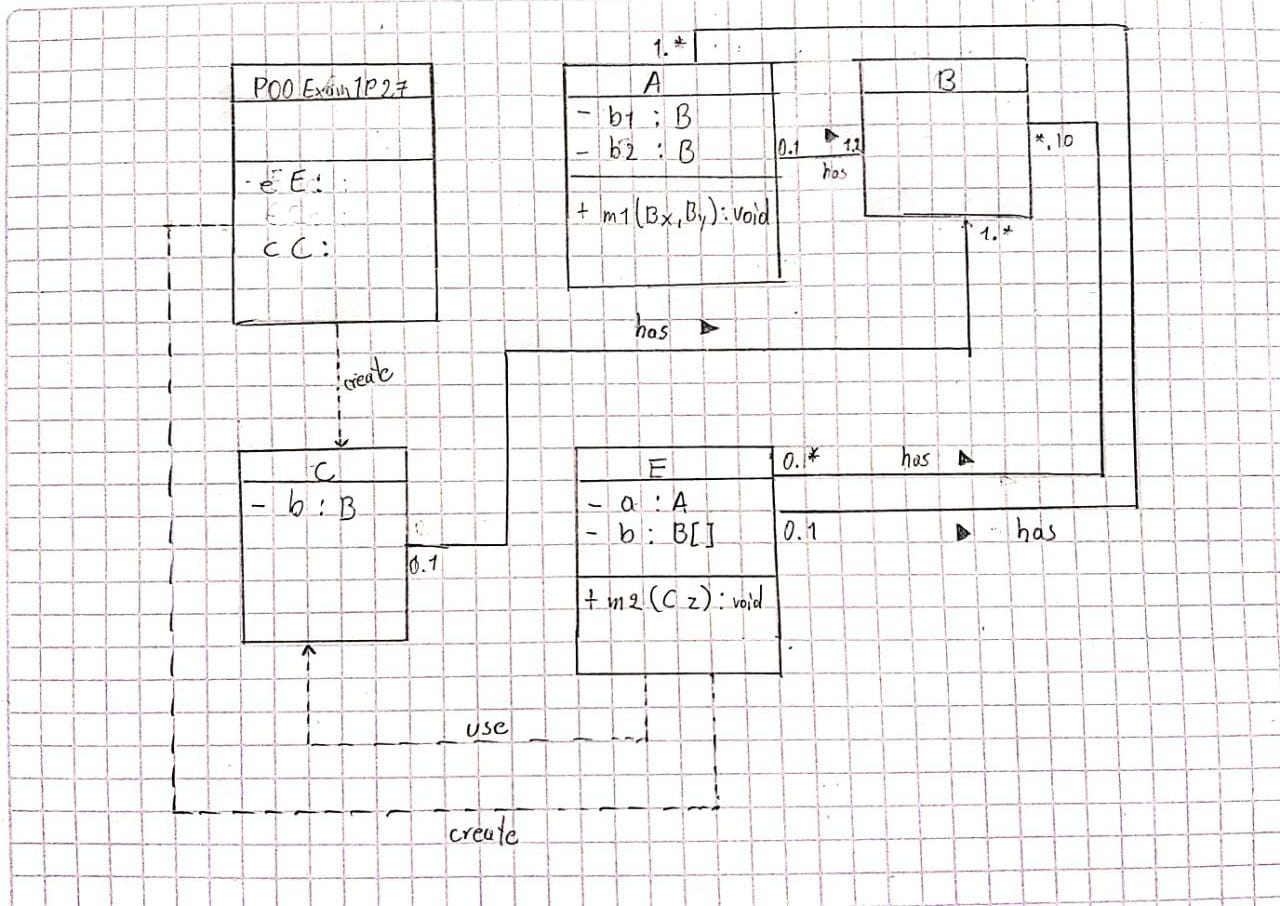 P00 Exam1P27
- e E:
c C:
create
1.*
A
- b1 : B
- b2 : B
+ m1(Bx,By): void
0.1
1.2
has
B
*.10
1.*
has
C
- b : B
0.1
E
- a : A
- b : B[]
+ m2(C z): void
0.*
has
0.1
has
use
create